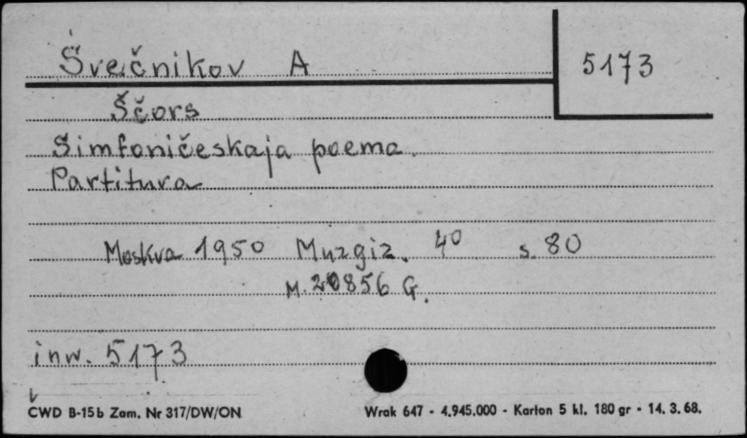 Švečnikov A
5173
Ščors
Simfoničeskaja poema.
Partitura
Moskva 1950 Muzgiz. 4⁰ s. 80
M. 20856 G.
inw. 5173
CWD B-15b Zam. Nr 317/DW/ON
Wrak 647 - 4.945.000 - Karton 5 kl. 180 gr - 14. 3. 68.